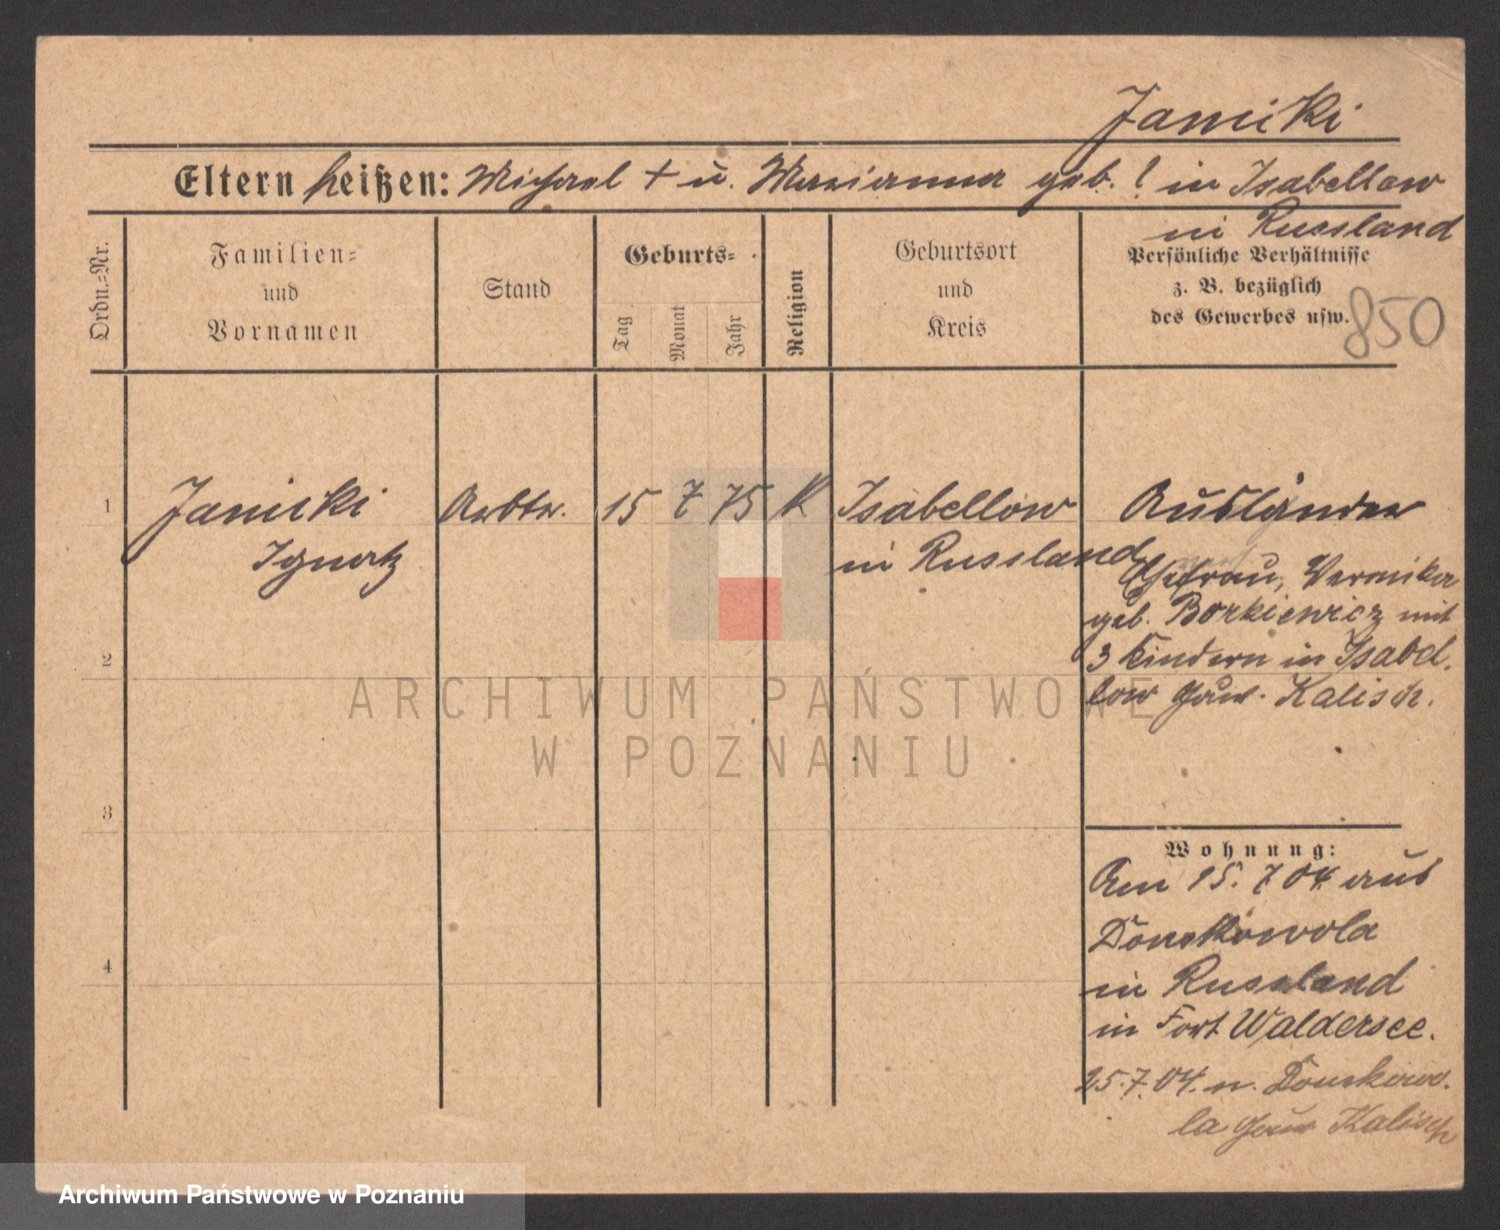 Janicki
Eltern heißen: Michael + u. Marianna geb. ? in Isabellow
in Russland
Ordn.-Nr.
Familien-
und
Vornamen
Stand
Geburts-
Tag
Monat
Jahr
Religion
Geburtsort
und
Kreis
Persönliche Verhältnisse
z. B. bezüglich
des Gewerbes usw.
850
1
Janicki
Ignatz
Arbtr.
15 7 75
K
Isabellow
in Russland
Ausländer
Ehefrau, Veronika
geb. Borkiewicz mit
3 Kindern in Isabel-
low Gouv. Kalisch.
2
3
4
ARCHIWUM PAŃSTWOWE
W POZNANIU
Wohnung:
Am 15. 7 04 aus
Donskowola
in Russland
in Fort Waldersee.
25.7.04. n. Donskowo-
la Gouv Kalisch
Archiwum Państwowe w Poznaniu